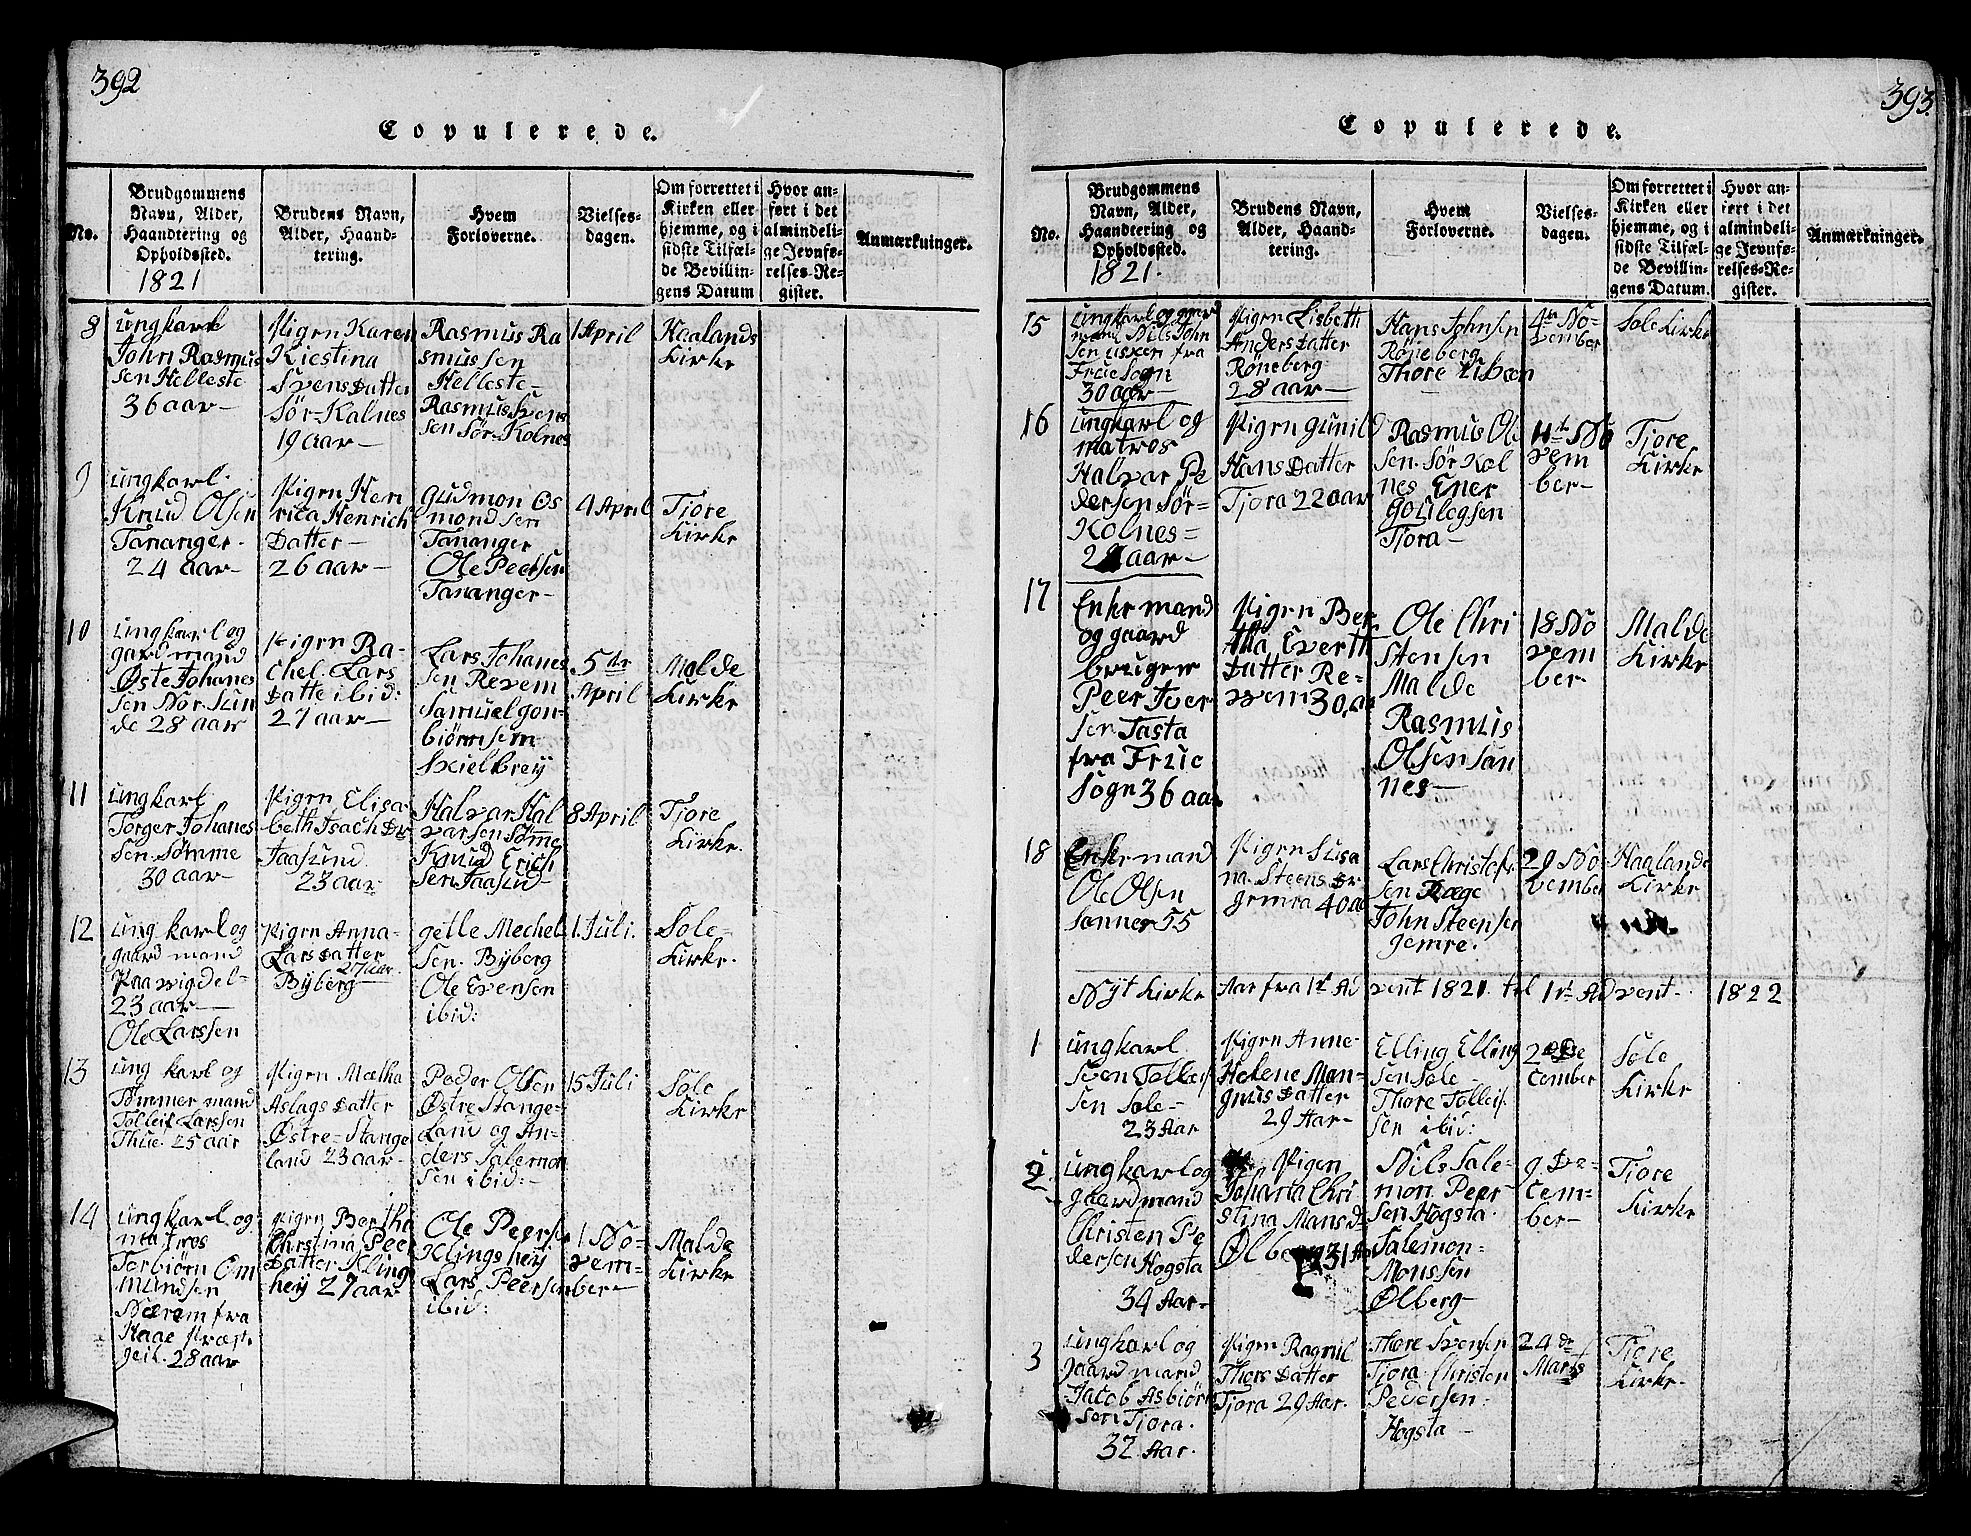 392
Copulerede.
No.
Brudgommens
Navn, Alder,
Haandtering og
Opholdssted.
1821
Brudens Navn,
Alder, Haand-
tering.
Hvem
Forloverne.
Vielses-
dagen.
Om forrettet i
Kirken eller
hjemme, og i
sidste Tilfæl-
de Bevillin-
gens Datum
Hvor an-
ført i det
almindeli-
ge Jevnfø-
relses-Re-
gister.
Anmærkninger.
8
ungkarl
John Rasmus
sen Helleste
36 aar
Pigen Karen
Kiestina
Svensdatter
Sör-Kalnes
19 aar
Rasmus Ra
smussen
Helleste
Rasmus Svens
sen Sör-Kolnes
1 April
Haalands
Kirke
9
ungkarl
Knud Olsen
Tananger
24 aar
Pigen Hen
rica Henrich
Datter
26 aar
Gudmon Os
mondsen
Tananger
Ole Peersen
Tananger
4 April
Tjore
Kirke
10
ungkarl og
gardmand
Øste Johanes
sen Nor Sun
de 28 aar
Pigen Ra-
chel Lars
datte ibid:
27 aar
Lars Johanes
sen Revem
Samuel gon-
biörnsen
Sxielbreij
5te
April
Malde
Kirke
11
ungkarl
Torger Johanes
sen Sømme
30 aar
Pigen Elisa
beth Isach Dr
Taasund
23 aar
Halvar Hal
varsen Sømme
Knud Erich
sen Taasud
8 April
Tjore
Kirke.
12
ung karl og
gaardmand
Paavigdel
23 aar
Ole Larssen
Pigen Anna
Larsdatter
27 aar.
Bijberg
gelle Mechel
sen. Bijberg
Ole Evensen
ibid:
1. Juli.
Sole
Kirke.
13
ung karl og
Tömmermand
Tolleif Larssen
Thue. 25 aar
Pigen Mætha
Aslagsdatter
Østre Stange
land 23 aar
Peder Olsen
Østre Stange
Land og An-
ders Salemon
sen ibid:
15 Juli
Sole
Kirke
14
ungkarl og
matros
Torbiörn Om
mundsen
Nærem fra
Haae Præst
geil. 28 aar
Pigen Bertha
Christina Peer
Datter Kling
heij 27 aar
Ole Peersen
Klingsheij
Lars Peersen
ibid:
1 No-
vem-
ber
Malde
Kirke
393
Copulerede.
No.
Brudgommens
Navn, Alder,
Haandtering og
Opholdssted.
1821.
Brudens Navn,
Alder, Haand-
tering.
Hvem
Forloverne.
Vielses-
dagen.
Om forrettet i
Kirken eller
hjemme, og i
sidste Tilfæl-
de Bevillin-
gens Datum.
Hvor an-
ført i det
almindeli-
ge Jevnfø-
relses-Re-
gister.
Anmærkninger.
15
ungkarl og
mand Nils John
sen fra
Frue Sogn
30 aar
Pigen Lisbeth
Andersdatter
Röneberg
28 aar
Hans Johnsen
Röjeberg
Thore
4de No-
vember
Sole Kirke
16
ungkarl og
matros
Halvar Pe
dersen Sör-
Kolnes
aar
Pigen Gunild
Hansdatter
Tjora 22 aar
Rasmus Ols
sen. Sör Kol
nes Ener
Goulegsen
Tjora
11te No
vem
ber
Tjore
Kirke
17
Enkemand
og gaard
bruger
Peer Iver
sen Tasta
fra Frue
Sogn 36 aar
Pigen Ber
tha Everth
Datter Re-
vem 30 aa
Ole Chri
stensen
Malde
Rasmus
Olsen Sau
nes
18 No
vem
ber
Malde
Kirke
18
Enkemand
Ole Olsen
Sanner 55
Pigen Susa
na Steens Dr
gemra 40 aa
Lars Christofer
sen Ræge
John Steensen
gemre.
29 No
vember
Haalands
Kirke
Nyt Kirke Aar fra 1te Advent 1821 til 1te Advent 1822
1
ungkarl
Sven Tolleif
sen Sole
23 Aar
Pigen Anne
Helene Man-
gnusdatter
29 Aar
Elling Elling
sen Sole
Thore Tolleif
sen ibid:
2 De
cember
Sole
Kirke
2
ungkarl og
gaardmand
Christen Pe
dersen Hogsta
34 Aar
Pigen
Johana Chri
stina Mansd
Ølberg 31 Aar
Nils Sale-
mon Peer
sen Hogsta
Salemon
Monssen
Ølberg
9 De-
cem-
ber
Tjore
Kirke
3
ungkarl og
gaardmand
Jacob Asbiörn
sen Tjora.
32 Aar.
Pigen Ragnil
Thorsdatter
Tjora 29 Aar.
Thore Svensen
Tjora Christen
Pedersen
Hogsta
24de
Marts
Tjore
Kirke.